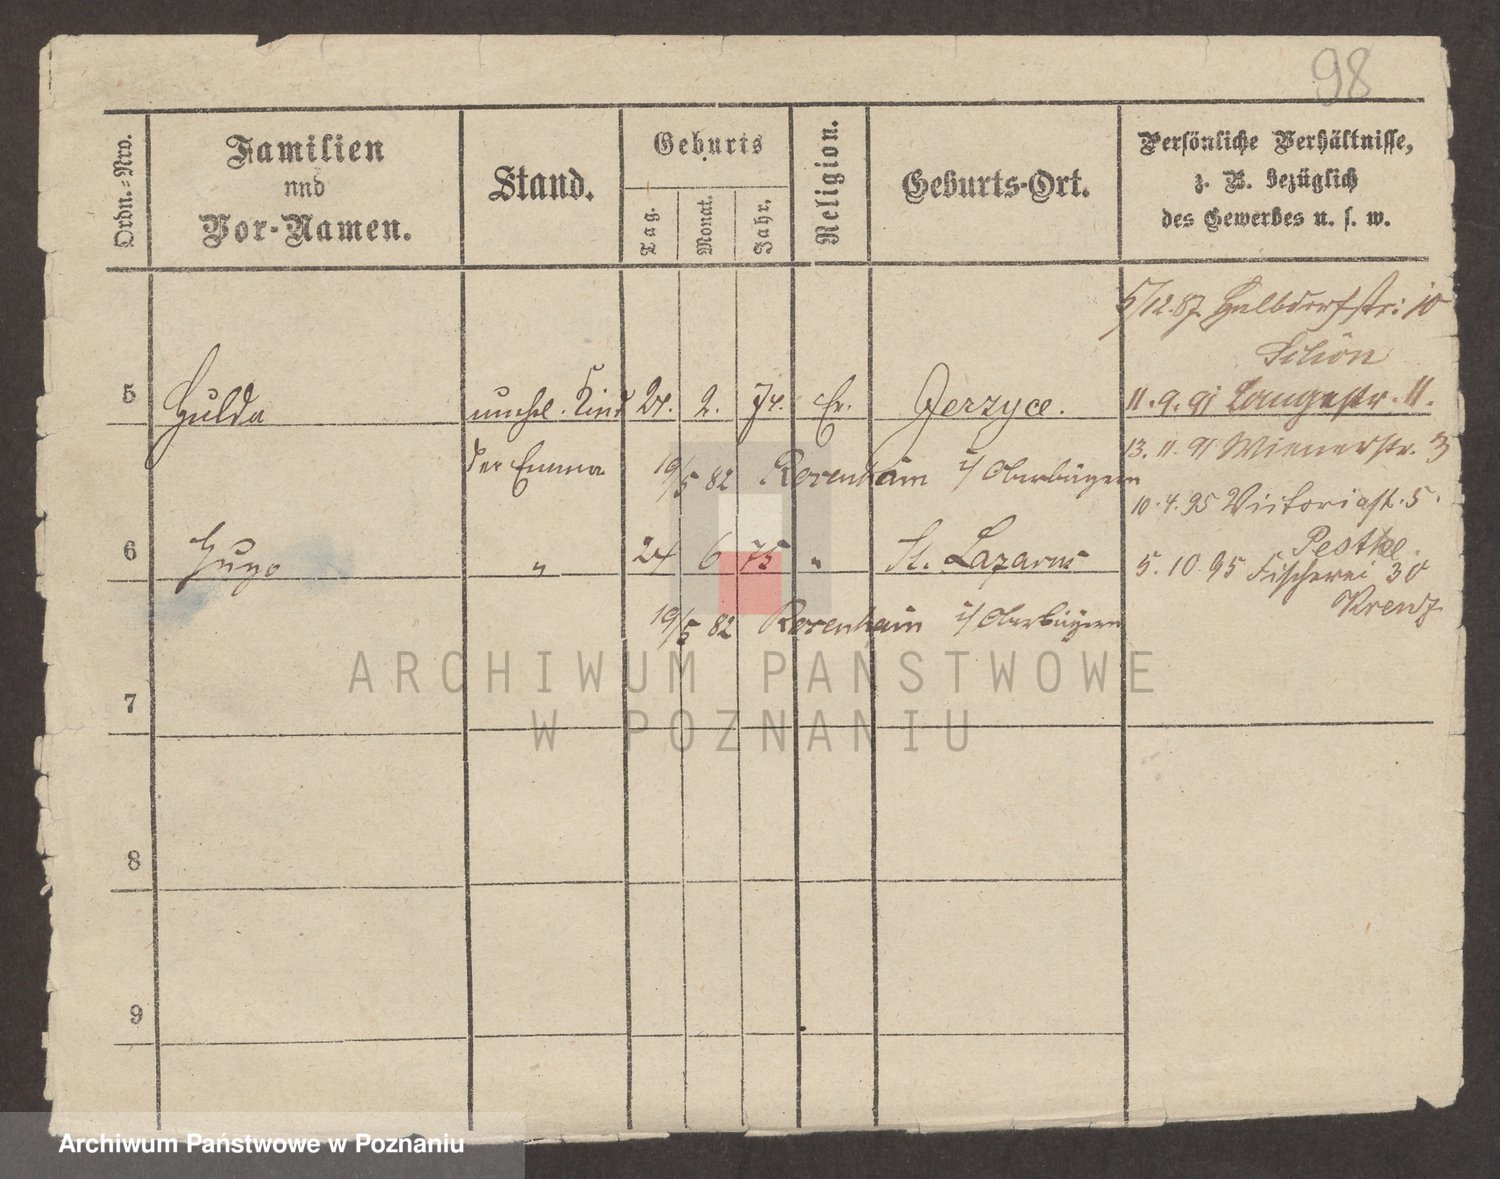 98
Ordn.-Nro.
Familien
nnd
Vor-Namen.
Stand.
Geburts
Tag.
Monat.
Jahr.
Religion.
Geburts-Ort.
Persönliche Verhältnisse,
z. B. bezüglich
des Gewerbes u. s. w.
5/12.87. Halbdorfstr: 10
5
Hulda
unehel. Kind
24.
2.
74.
Ev.
Jerzyce.
11.9.91 Langestr. 11.
der Emma
19/5 82
Rosenhaim i/
13. 11. 91 Wienerstr. 3
10.4.95 Victoriast. 5.
6
Hugo
"
24
6
75
"
St. Lazarus
Pestke.
5.10.95 Fischerei 30
Krenz
19/5 82
Rosenhaim i/
7
8
9
ARCHIWUM PAŃSTWOWE
W POZNANIU
Archiwum Państwowe w Poznaniu